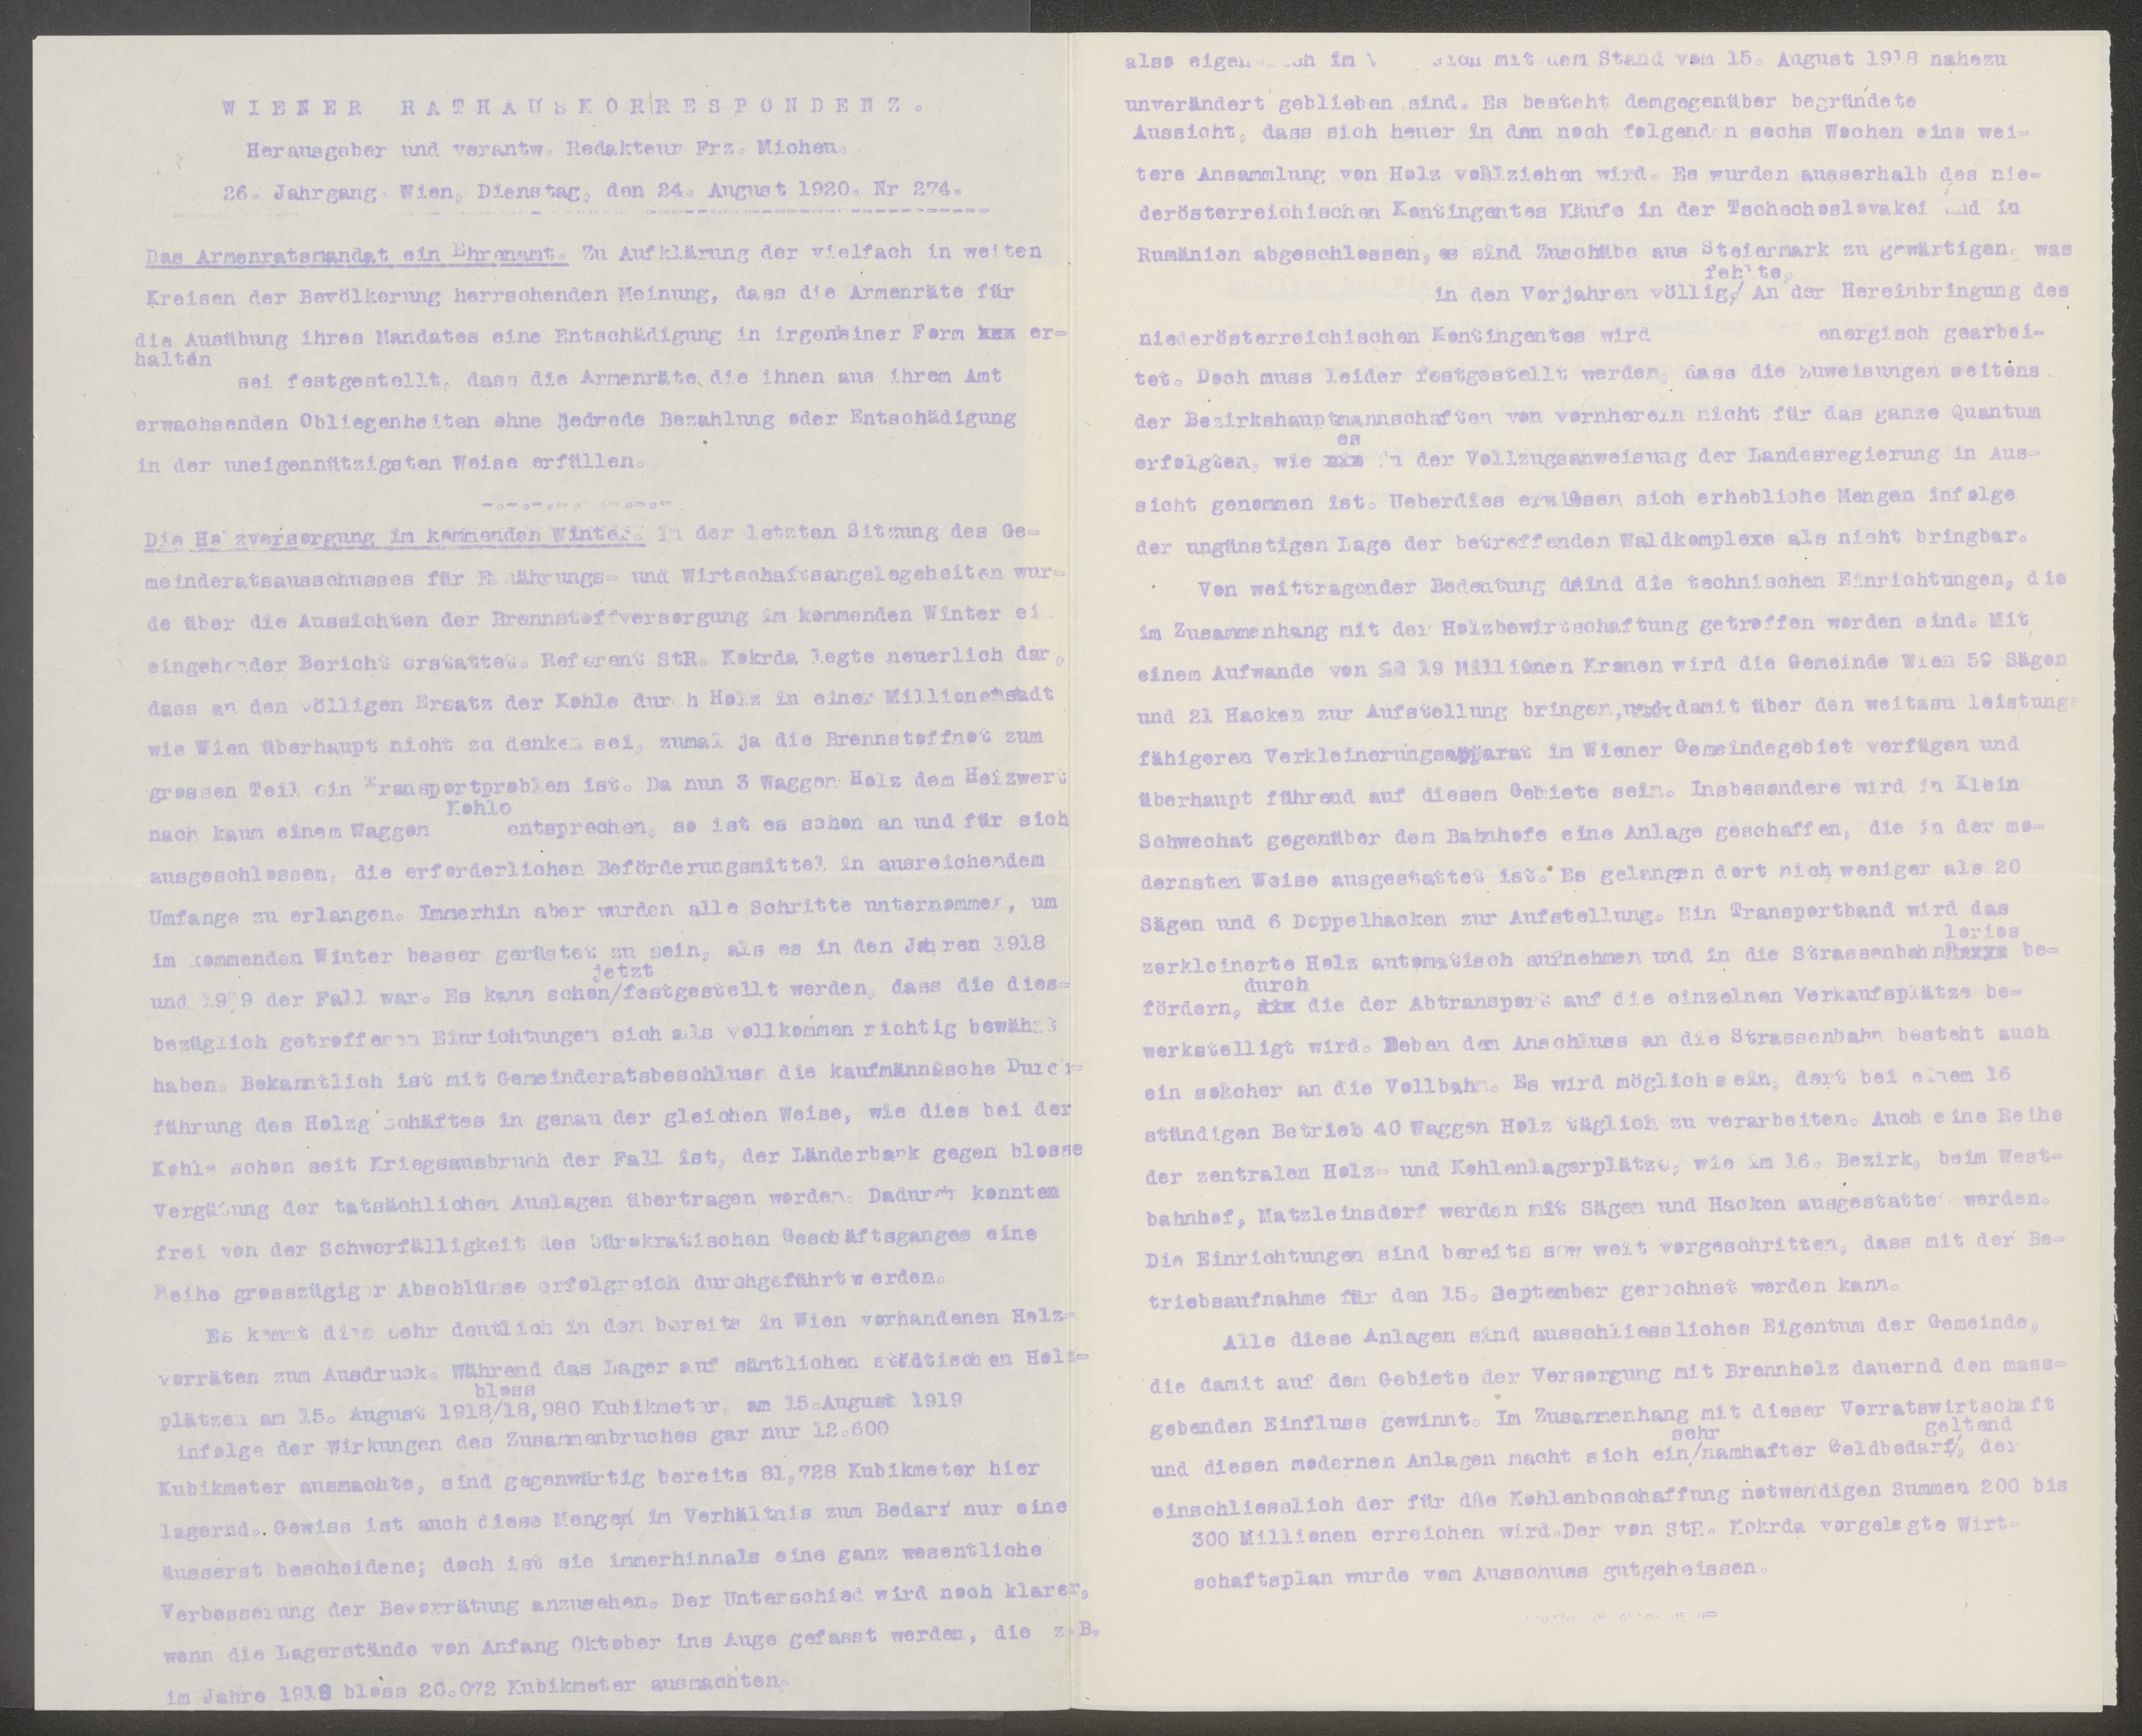 WIENER RATHAUSKORRESPONDENZ.
Herausgeber und verantw. Redakteur Frz. Micheu.
26. Jahrgang. Wien, Dienstag, den 24. August 1920. Nr 274.
Das Armenratsmandat ein Ehrenamt. Zu Aufklärung der vielfach in weiten
Kreisen der Bevölkerung herrschenden Meinung, dass die Armenräte für
die Ausübung ihres Mandates eine Entschädigung in irgendeiner Form xxx er-
halten
sei festgestellt, dass die Armenräte die ihnen aus ihrem Amt
erwachsenden Obliegenheiten ohne jedwede Bezahlung oder Entschädigung
in der uneigennützigsten Weise erfüllen.
-.-.-.-.-.-.-
Die Holzversorgung im kommenden Winter. In der letzten Sitzung des Ge-
meinderatsausschusses für Ernährungs- und Wirtschaftsangelegeheiten wur-
de über die Aussichten der Brennstoffversorgung im kommenden Winter ei
eingehender Bericht erstattet. Referent StR. Kokrda legte neuerlich dar,
dass an den völligen Ersatz der Kohle durch Holz in einer Millionenstadt
wie Wien überhaupt nicht zu denken sei, zumal ja die Brennstoffnot zum
grossen Teil ein Transportproblem ist. Da nun 3 Waggon Holz dem Heizwert
Kohle
nach kaum einem Waggon entsprechen, so ist es schon an und für sich
ausgeschlossen, die erforderlichen Beförderungsmittel in ausreichendem
Umfange zu erlangen. Immerhin aber wurden alle Schritte unternommen, um
im kommenden Winter besser gerüstet zu sein, als es in den Jahren 1918
jetzt
und 1919 der Fall war. Es kann schon/festgestellt werden, dass die dies-
bezüglich getroffenen Einrichtungen sich als vollkommen richtig bewährt
haben. Bekanntlich ist mit Gemeinderatsbeschluss die kaufmännische Durch-
führung des Holzgeschäftes in genau der gleichen Weise, wie dies bei der
Kohle schon seit Kriegsausbruch der Fall ist, der Länderbank gegen blosse
Vergütung der tatsächlichen Auslagen übertragen worden. Dadurch konnten
frei von der Schwerfälligkeit des bürokratischen Geschäftsganges eine
Reihe grosszügiger Abschlüsse erfolgreich durchgeführt werden.
Es kommt dies sehr deutlich in den bereits in Wien vorhandenen Holz-
vorräten zum Ausdruck. Während das Lager auf sämtlichen städtischen Holz-
bloss
plätzen am 15. August 1918/18,980 Kubikmeter, am 15.August 1919
infolge der Wirkungen des Zusammenbruches gar nur 12.600
Kubikmeter ausmachte, sind gegenwärtig bereits 81,728 Kubikmeter hier
lagernd. Gewiss ist auch diese Mengen im Verhältnis zum Bedarf nur eine
äusserst bescheidene; doch ist sie immerhinnals eine ganz wesentliche
Verbesserung der Bevorrätung anzusehen. Der Unterschied wird noch klarer,
wenn die Lagerstände von Anfang Oktober ins Auge gefasst werden, die z.B.
im Jahre 1918 bloss 20.072 Kubikmeter ausmachten,
also im mit dem Stand vom 15. August 1918 nahezu
unverändert geblieben sind. Es besteht demgegenüber begründete
Aussicht, dass sich heuer in den noch folgenden sechs Wochen eine wei-
tere Ansammlung von Holz vollziehen wird. Es wurden ausserhalb des nie-
derösterreichischen Kontingentes Käufe in der Tschechoslovakei und in
Rumänien abgeschlossen, es sind Zuschübe aus Steiermark zu gewärtigen, was
fehlte,
in den Vorjahren völlig,/ An der Hereinbringung des
niederösterreichischen Kontingentes wird energisch gearbei-
tet. Doch muss leider festgestellt werden, dass die Zuweisungen seitens
der Bezirkshauptmannschaften von vornherein nicht für das ganze Quantum
es
erfolgten, wie xxx in der Vollzugsanweisung der Landesregierung in Aus-
sicht genommen ist. Ueberdies erwiesen sich erhebliche Mengen infolge
der ungünstigen Lage der betreffenden Waldkomplexe als nicht bringbar.
Von weittragender Bedeutung dsind die technischen Einrichtungen, die
im Zusammenhang mit der Holzbewirtschaftung getroffen worden sind. Mit
einem Aufwande von 19 Millionen Kronen wird die Gemeinde Wien 59 Sägen
und 21 Hacken zur Aufstellung bringen, und damit über den weitasu leistungs
fähigeren Verkleinerungsapparat im Wiener Gemeindegebiet verfügen und
überhaupt führend auf diesem Gebiete sein. Insbesondere wird in Klein
Schwechat gegenüber dem Bahnhofe eine Anlage geschaffen, die in der mo-
dernsten Weise ausgestattet ist. Es gelangen dort nich weniger als 20
Sägen und 6 Doppelhacken zur Aufstellung. Ein Transportband wird das
lories
zerkleinerte Holz automatisch aufnehmen und in die Strassenbahn be-
durch
fördern, xxx die der Abtransport auf die einzelnen Verkaufsplätze be-
werkstelligt wird. Neben dem Anschluss an die Strassenbahn besteht auch
ein solcher an die Vollbahn. Es wird möglich sein, dort bei einem 16
stündigen Betrieb 40 Waggon Holz täglich zu verarbeiten. Auch eine Reihe
der zentralen Holz- und Kohlenlagerplätze, wie im 16. Bezirk, beim West-
bahnhof, Matzleinsdorf werden mit Sägen und Hacken ausgestattet werden.
Die Einrichtungen sind bereits sow weit vorgeschritten, dass mit der Be-
triebsaufnahme für den 15. September gerechnet werden kann.
Alle diese Anlagen sind ausschliessliches Eigentum der Gemeinde,
die damit auf dem Gebiete der Versorgung mit Brennholz dauernd den mass-
gebenden Einfluss gewinnt. Im Zusammenhang mit dieser Vorratswirtschaft
sehr geltend
und diesen modernen Anlagen macht sich ein/namhafter Geldbedarf/, der
einschliesslich der für die Kohlenbeschaffung notwendigen Summen 200 bis
300 Millionen erreichen wird.Der von StR. Kokrda vorgelegte Wirt-
schaftsplan wurde vom Ausschuss gutgeheissen.